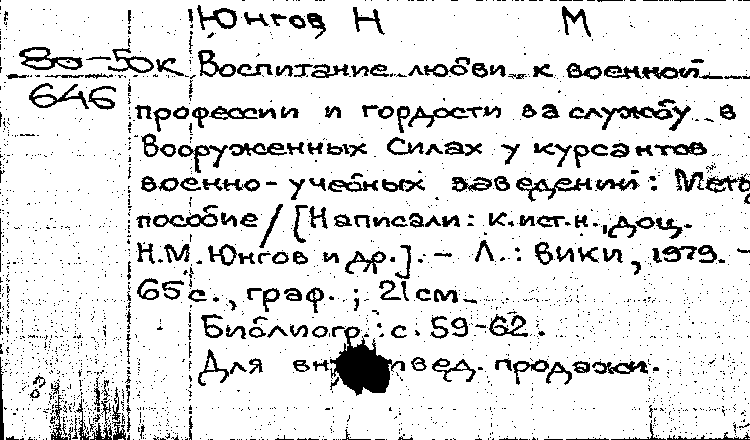 Юнгов Н М
80-50к Воспитание любви к военной
646 профессии и гордости за службу в
Вооруженных Силах у курсантов
военно-учебных заведений: Мето
пособие / [Написали: к.ист.н., доц.
Н.М. Юнгов и др.]. - Л.: ВИКИ, 1979. -
65 с., граф. ; 21 см.
Библиогр.: с. 59-62.
Для вед. продажи.